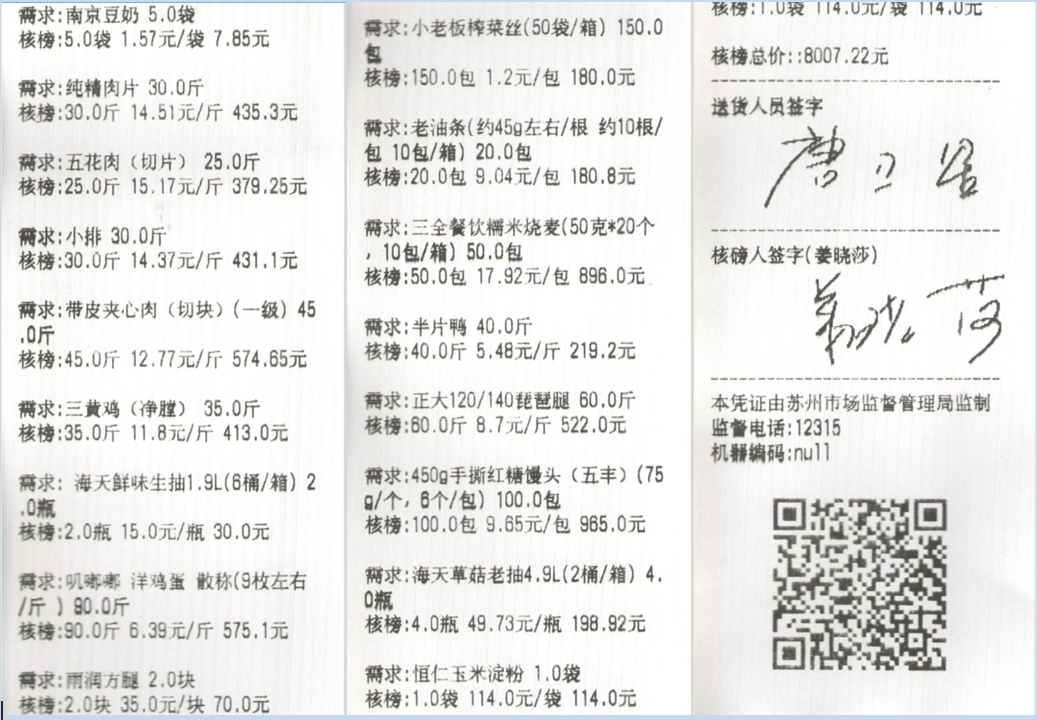 需求:南京豆奶 5.0袋
核榜:5.0袋 1.57元/袋 7.85元
需求:纯精肉片 30.0斤
核榜:30.0斤 14.51元/斤 435.3元
需求:五花肉（切片） 25.0斤
核榜:25.0斤 15.17元/斤 379.25元
需求:小排 30.0斤
核榜:30.0斤 14.37元/斤 431.1元
需求:带皮夹心肉（切块）(一级) 45
.0斤
核榜:45.0斤 12.77元/斤 574.65元
需求:三黄鸡（净膛） 35.0斤
核榜:35.0斤 11.8元/斤 413.0元
需求: 海天鲜味生抽1.9L(6桶/箱) 2
.0瓶
核榜:2.0瓶 15.0元/瓶 30.0元
需求:叽嘟嘟 洋鸡蛋 散称(9枚左右
/斤 ) 90.0斤
核榜:90.0斤 6.39元/斤 575.1元
需求:雨润方腿 2.0块
核榜:2.0块 35.0元/块 70.0元
需求:小老板榨菜丝(50袋/箱) 150.0
包
核榜:150.0包 1.2元/包 180.0元
需求:老油条(约45g左右/根 约10根/
包 10包/箱) 20.0包
核榜:20.0包 9.04元/包 180.8元
需求:三全餐饮糯米烧麦(50克*20个
，10包/箱) 50.0包
核榜:50.0包 17.92元/包 896.0元
需求:半片鸭 40.0斤
核榜:40.0斤 5.48元/斤 219.2元
需求:正大120/140琵琶腿 60.0斤
核榜:60.0斤 8.7元/斤 522.0元
需求:450g手撕红糖馒头（五丰）(75
g/个，6个/包) 100.0包
核榜:100.0包 9.65元/包 965.0元
需求:海天草菇老抽4.9L(2桶/箱) 4.
0瓶
核榜:4.0瓶 49.73元/瓶 198.92元
需求:恒仁玉米淀粉 1.0袋
核榜:1.0袋 114.0元/袋 114.0元
核榜:1.0袋 114.0元/袋 114.0元
核榜总价::8007.22元
送货人员签字
核磅人签字(姜晓莎)
姜晓莎
本凭证由苏州市场监督管理局监制
监督电话:12315
机器编码:null